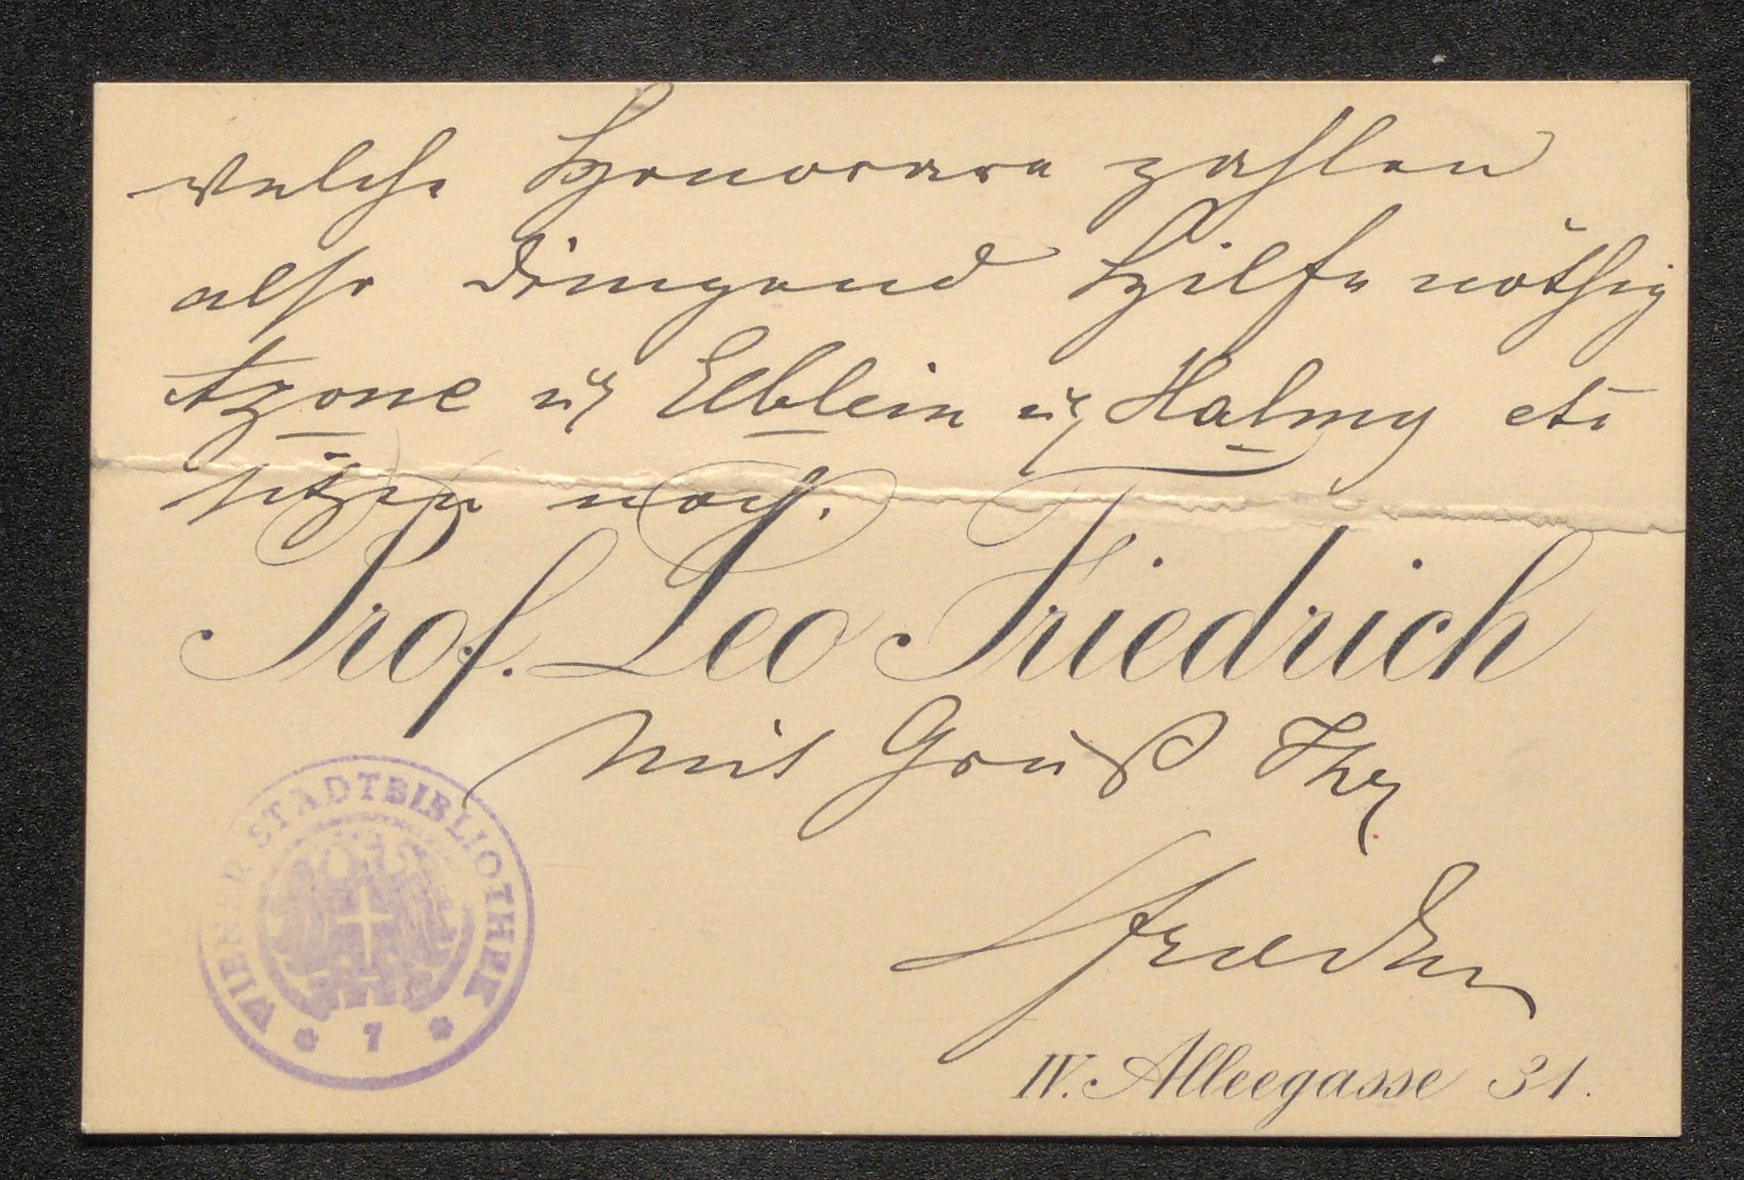 welche Honorare zahlen
also dringend Hilfe nöthig
u Elblein u Halmy etc
sitzen noch.
Prof. Leo Friedrich
Mit Gruß Ihr
IV. Alleegasse 31.
WIENER STADTBIBLIOTHEK
* 7 *